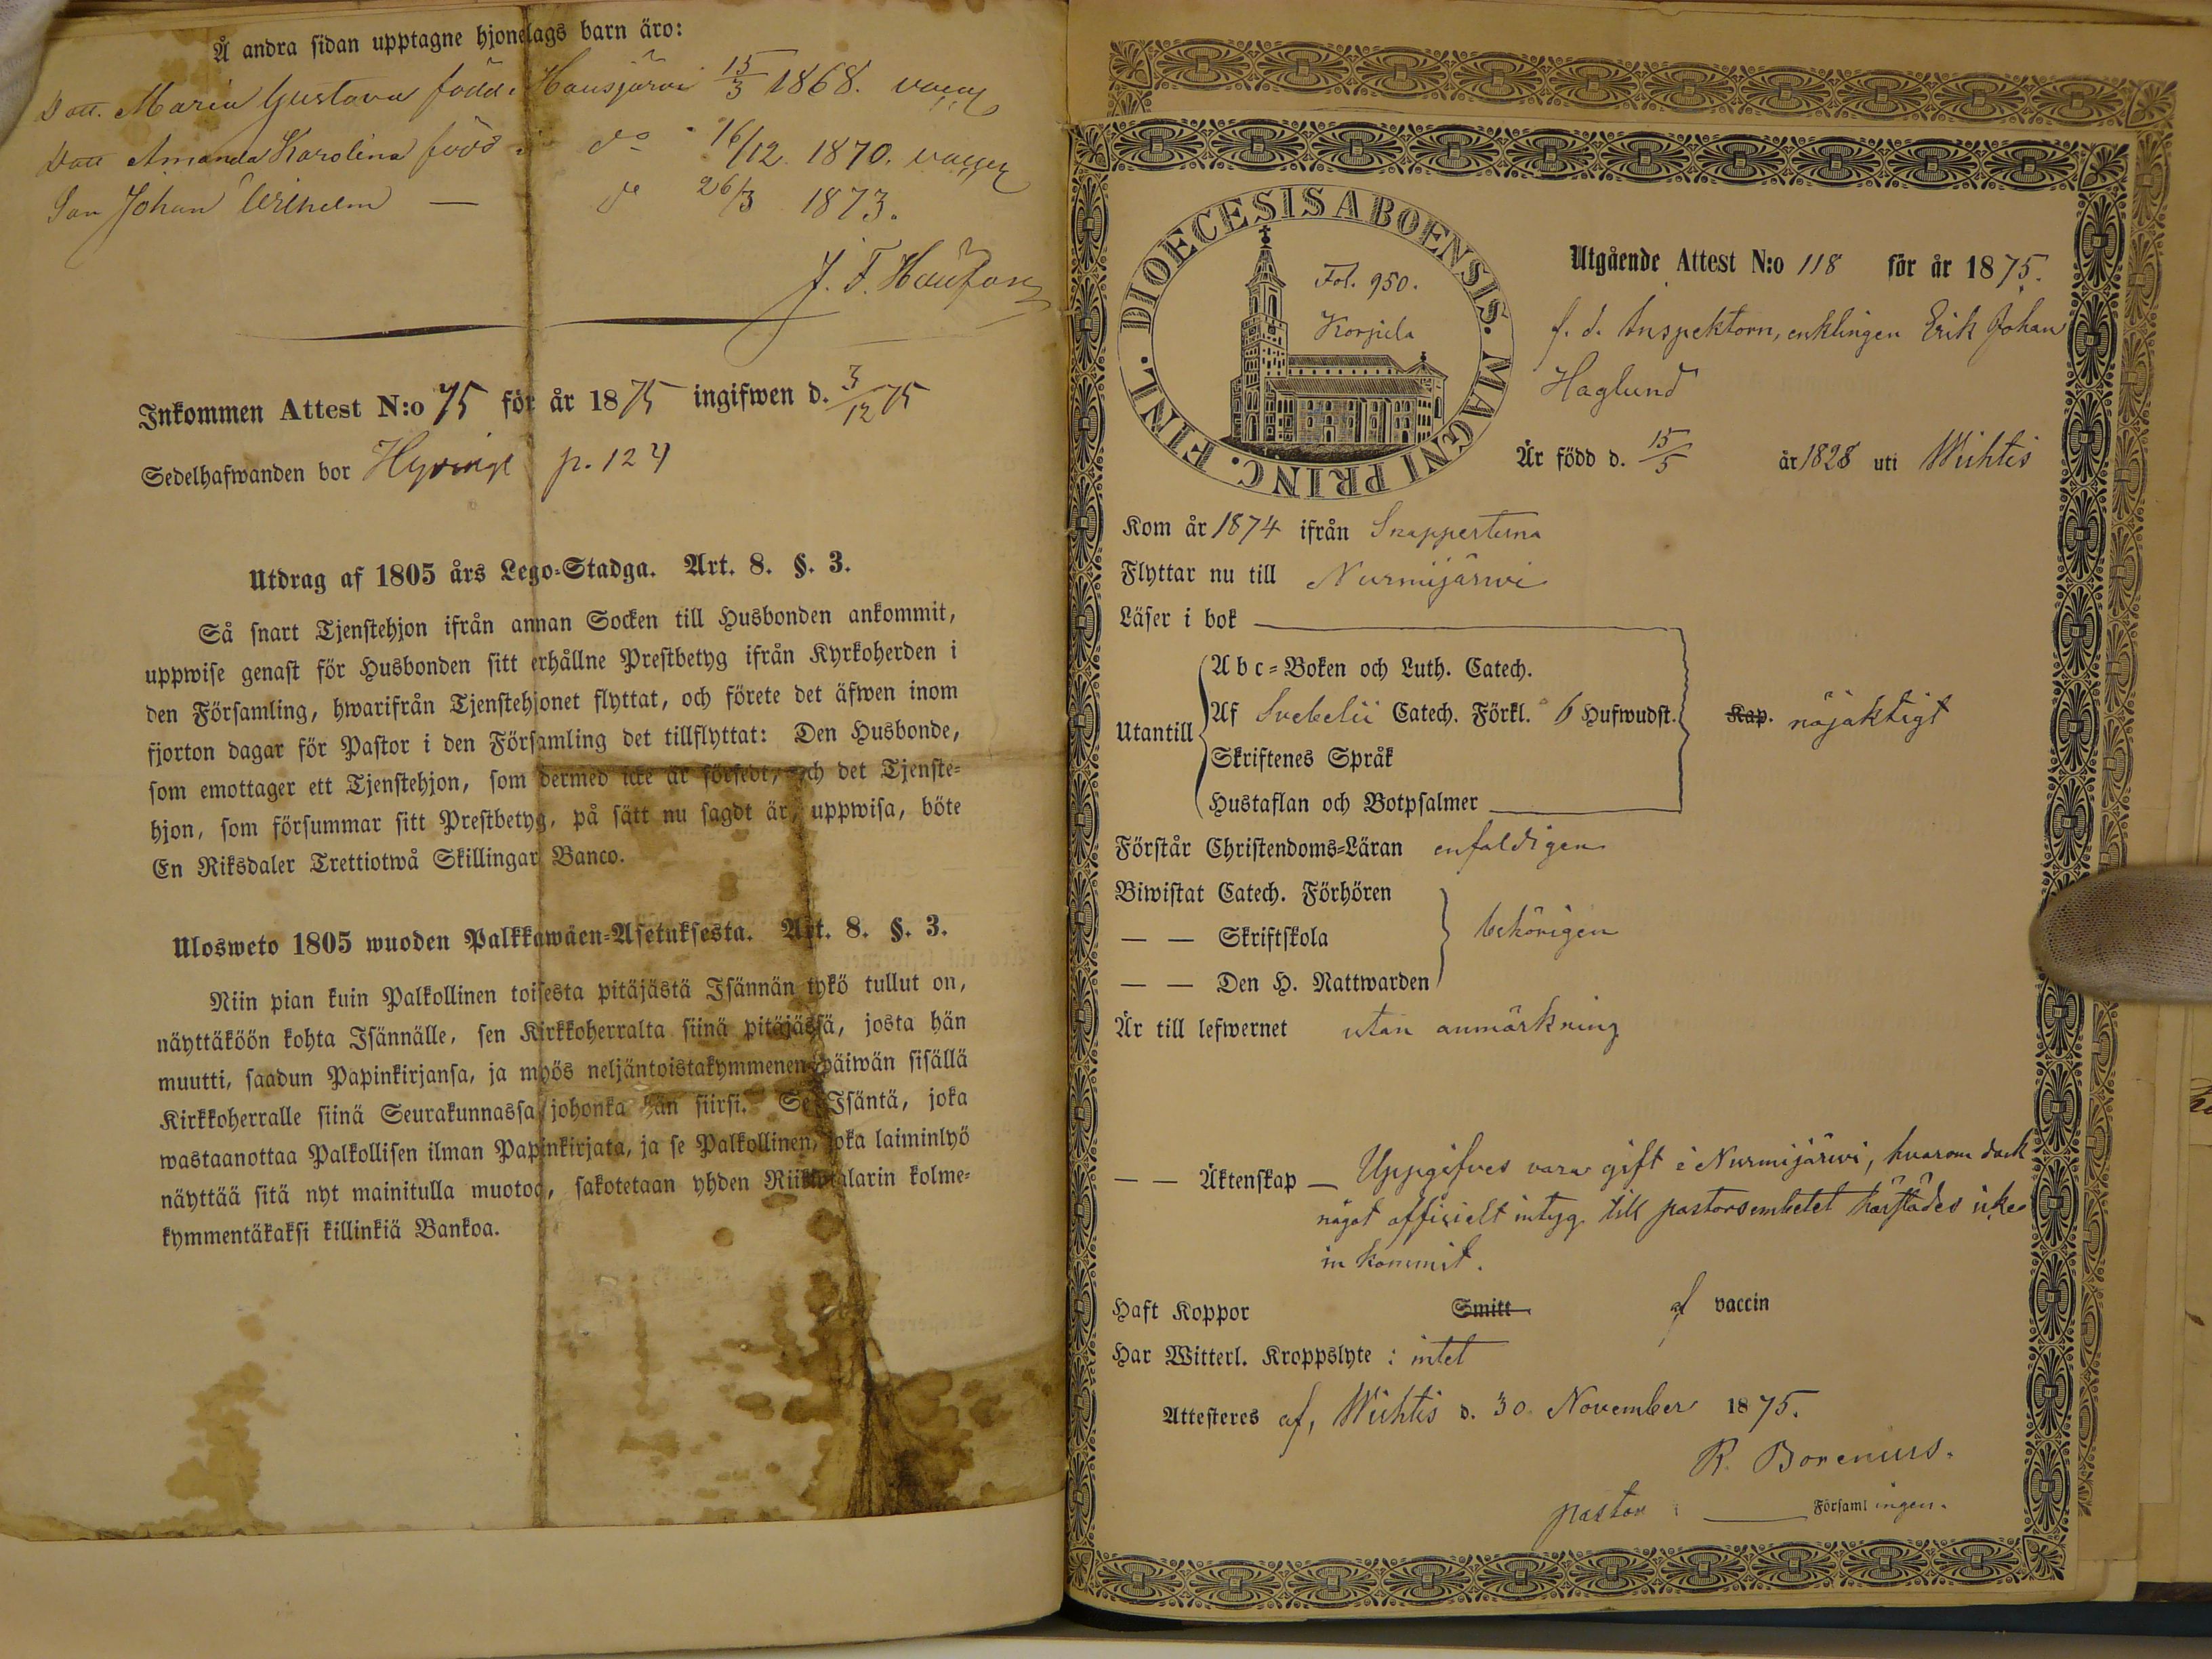 Å andra sidan upptagne hjonelags barn äro:
Dott. Maria Gustava född i Hausjärvi 15/3 1868. vacc
Dott Amanda Karolina född i do 16/12 1870. vacc
Son Johan Wilhelm — do 26/3 1873.
Inkommen Attest N:o 75 för år 1875 ingifwen d. 3/12 75
Sedelhafwanden bor Hyvinge p. 124
Utdrag af 1805 års Lego-Stadga. Art. 8. §. 3.
Så snart Tjenstehjon ifrån annan Socken till Husbonden ankommit,
uppwise genast för Husbonden sitt erhållne Prestbetyg ifrån Kyrkoherden i
den Församling, hwarifrån Tjenstehjonet flyttat, och förete det äfwen inom
fjorton dagar för Pastor i den Församling det tillflyttat: Den Husbonde,
som emottager ett Tjenstehjon, som dermed icke är försedt, och det Tjenste-
hjon, som försummar sitt Prestbetyg, på sätt nu sagdt är, uppwisa, böte
En Riksdaler Trettiotwå Skillingar Banco.
Ulosweto 1805 wuoden Palkkawäen-Asetuksesta. Art. 8. §. 3.
Niin pian kuin Palkollinen toisesta pitäjästä Isännän tykö tullut on,
näyttäköön kohta Isännälle, sen Kirkkoherralta siinä pitäjässä, josta hän
muutti, saadun Papinkirjansa, ja myös neljäntoistakymmenen päiwän sisällä
Kirkkoherralle siinä Seurakunnassa johonka hän siirsi. Se Isäntä, joka
wastaanottaa Palkollisen ilman Papinkirjata, ja se Palkollinen, joka laiminlyö
näyttää sitä nyt mainitulla muotoa, sakotetaan yhden Riikintalarin kolme-
kymmentäkaksi killinkiä Bankoa.
DIOECESIS ABOENSIS. MAGNI PRINC. FINL.
Fol. 950.
Korpela
Utgående Attest N:o 118 för år 1875.
f. d. Inspektorn, enklingen Erik Johan
Haglund
Är född d. 15/5 år 1828 uti Wichtis
Kom år 1874 ifrån Snappertuna
Flyttar nu till Nurmijärwi
Läser i bok
Utantill
A b c-Boken och Luth. Catech.
Af Svebelii Catech. Förkl. 6 Hufwudst.
Skriftenes Språk
Hustaflan och Botpsalmer
Kap. nöjaktigt
Förstår Christendoms-Läran enfaldigen
Biwistat Catech. Förhören
— — Skriftskola behörigen
— — Den H. Nattwarden
Är till lefwernet utan anmärkning
— — Äktenskap — Uppgifves vara gift i Nurmijärwi, hvarom dock
något officielt intyg till pastorsembetet härstädes icke
in kommit.
Haft Koppor Smitt af vaccin
Har Witterl. Kroppslyte : intet
Attesteres af, Wichtis d. 30 November 1875.
R. Borenius.
pastor i Församlingen.